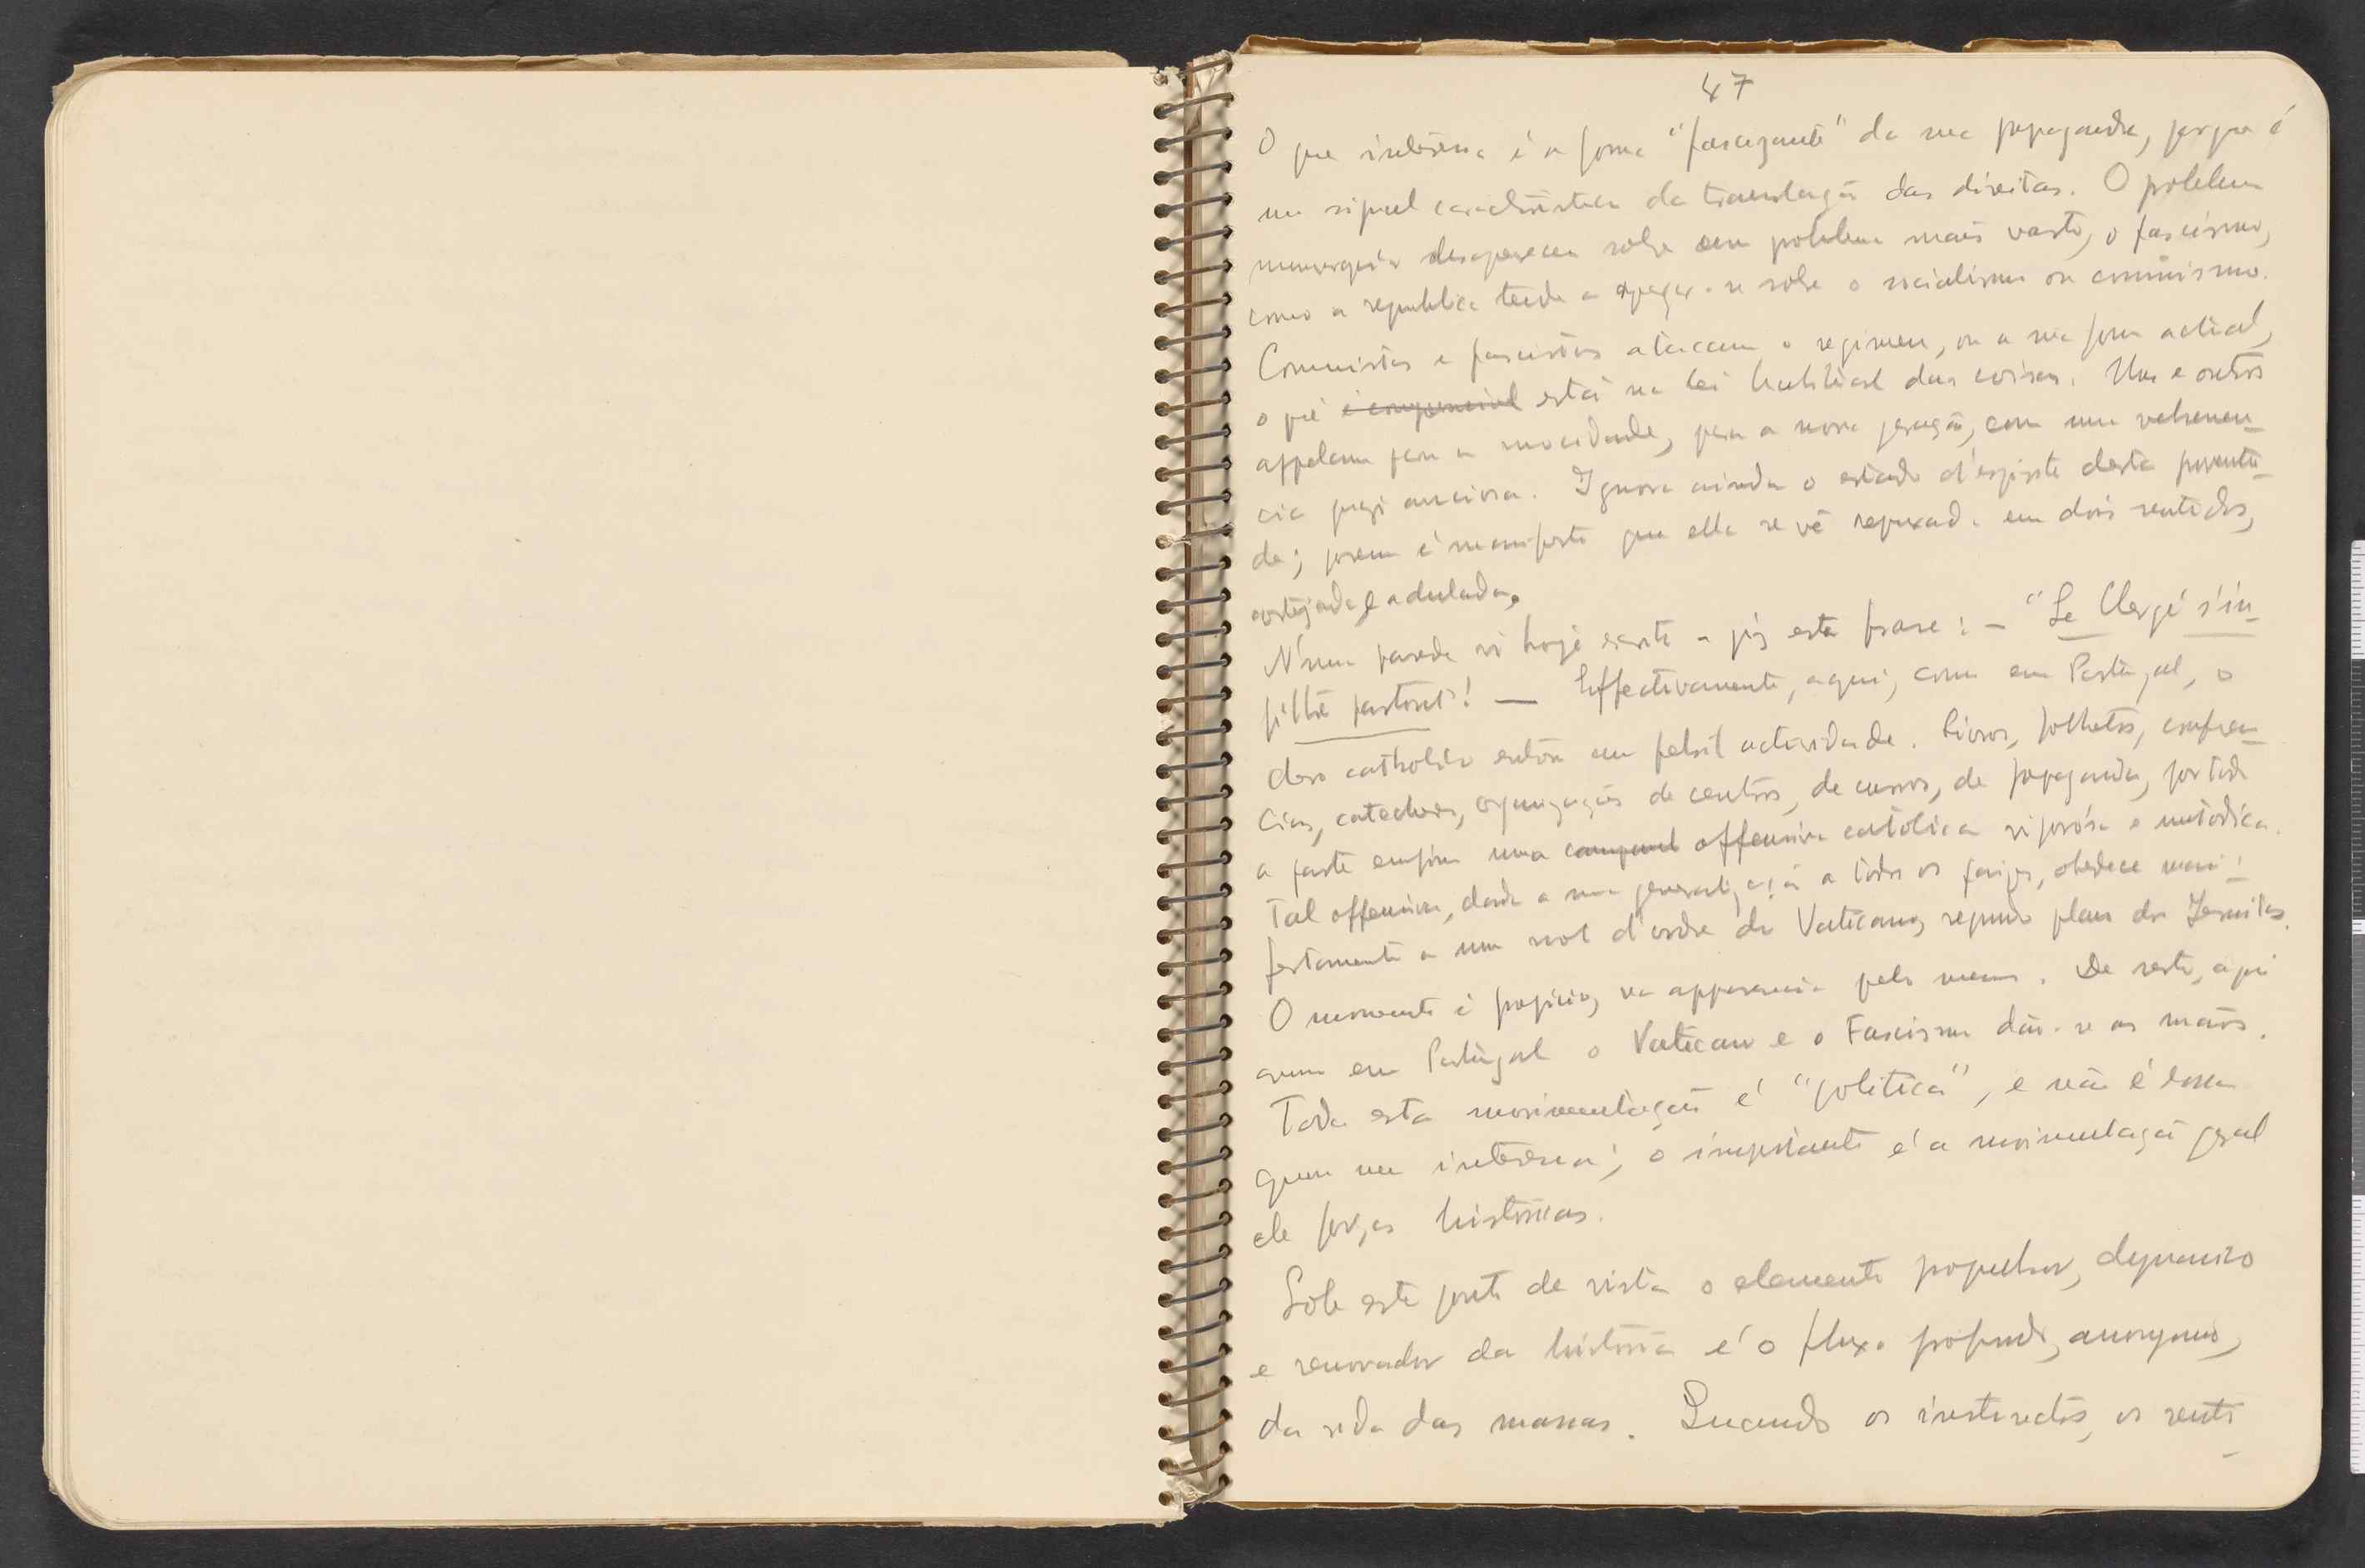 47
O que interessa é a forma "fascizante" da sua propaganda, porque é
um signal caracteristico da translação das direitas. O problema
monarquico desaparece sobre um problema mais vasto, o fascismo,
como a republica tende a apagar-se sobre o socialismo ou comunismo.
Comunistas e fascistas atacam o regimen, ou a sua forma actual,
o que está na lei habitual das coisas. Uns e outros
appelam para a mocidade, para a nova geração, com uma vehemen-
cia quasi anciosa. Ignoro ainda o estado d'espirito desta juventu-
de; porem é manifesto que ella se vê repuxada em dois sentidos,
cortejada e adulada.
N'uma parede vi hoje escrito a giz esta frase: - "Le Clergé s'in-
filtre partout"! — Effectivamente, aqui, como em Portugal, o
clero catholico entrou em febril actividade. Livros, folhetos, conferen-
cias, catecheses, organizações de centros, de cursos, de propaganda, por toda
a parte enfim uma offensiva católica vigorósa e metódica.
Tal offensiva, dada a sua generalização a todos os paizes, obedece mani-
festamente a um mot d'ordre do Vaticano, segundo plano dos Jesuitas.
O momento é propicio, na apparencia pelo menos. De resto, aqui
como em Portugal o Vaticano e o Fascismo dão-se as mãos.
Toda esta movimentação é "politica", e não é essa
que me interessa; o importante é a movimentação geral
de forças históricas.
Sob este ponto de vista o elemento popular, dynamico
e renovador da história é o fluxo profundo, anonymo,
da vida das massas. Quando os instinctos, os senti-